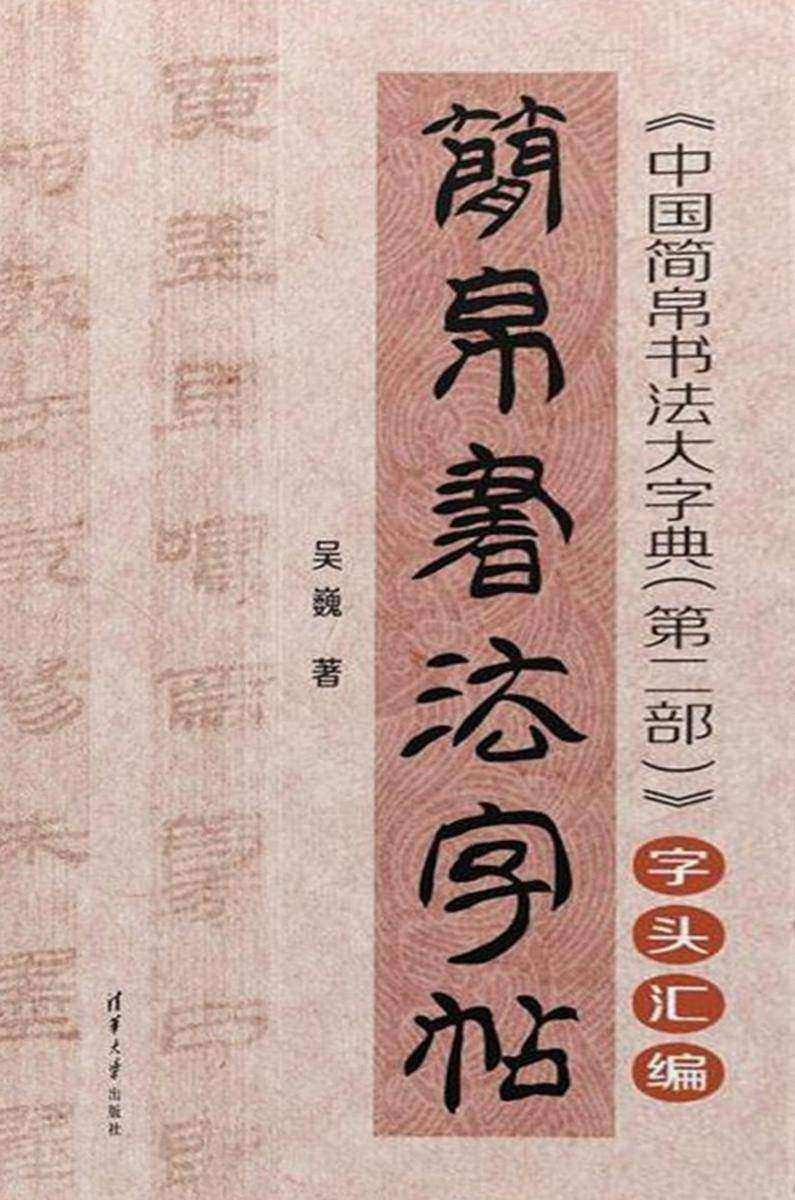 《中国简帛书法大字典(第二部)》字头汇编
簡帛書法字帖
吴巍 著
清华大学出版社